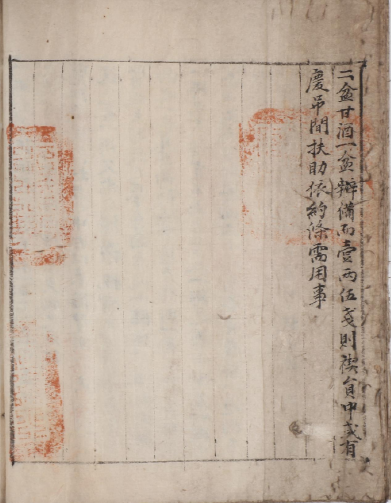 二盆甘酒一盆辦備而壹兩伍戔則稧員中或有
慶吊間扶助依約條需用事